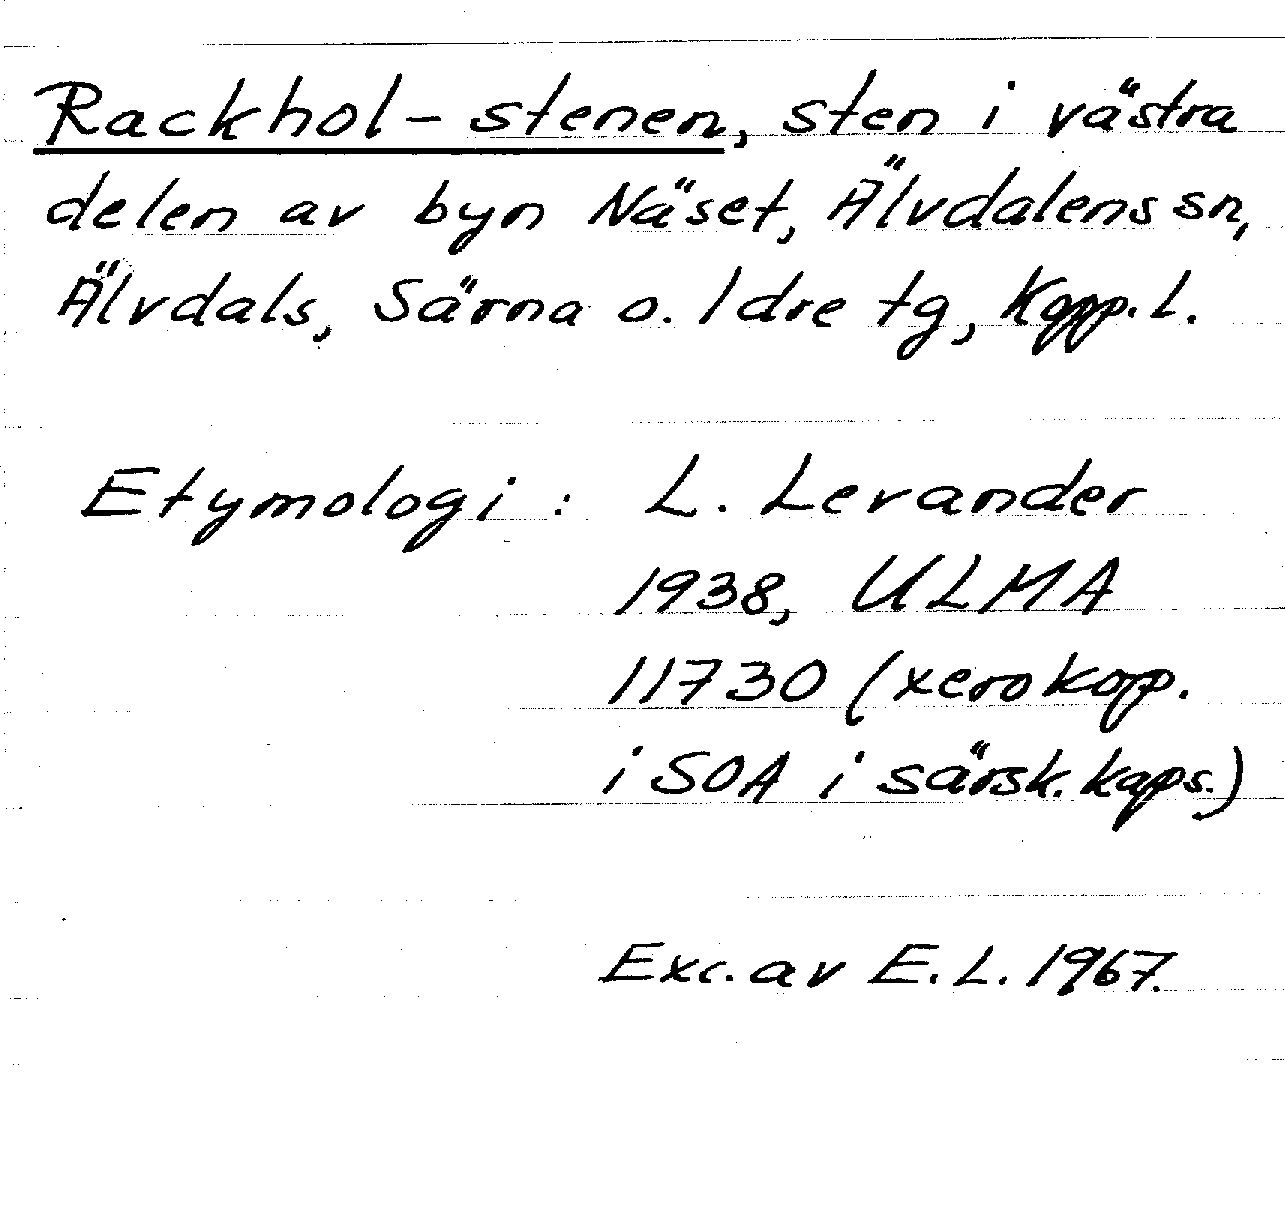 Rackhol-stenen, sten i västra
delen av byn Näset, Älvdalens sn,
Älvdals, Särna o. Idre tg, Kopp. l.
Etymologi: L. Levander
1938, ULMA
11730 (xerokopp.
i SOA i särsk. kaps.)
Exc. av E. L. 1967.